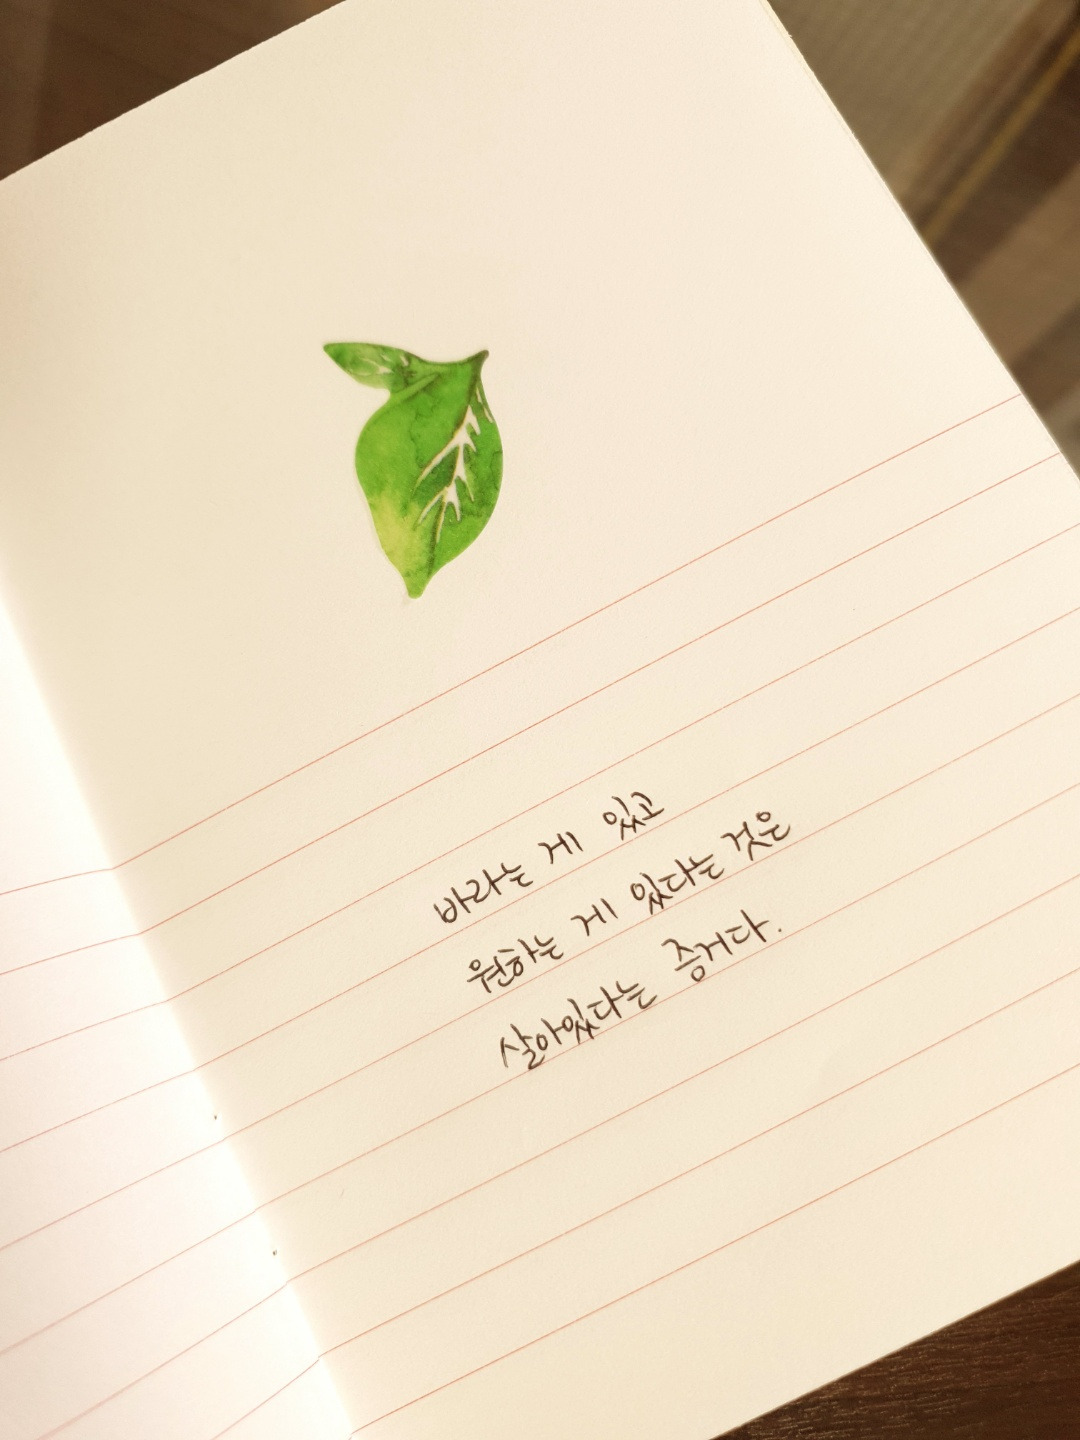 바라는 게 있고
원하는 게 있다는 것은
살아있다는 증거다.